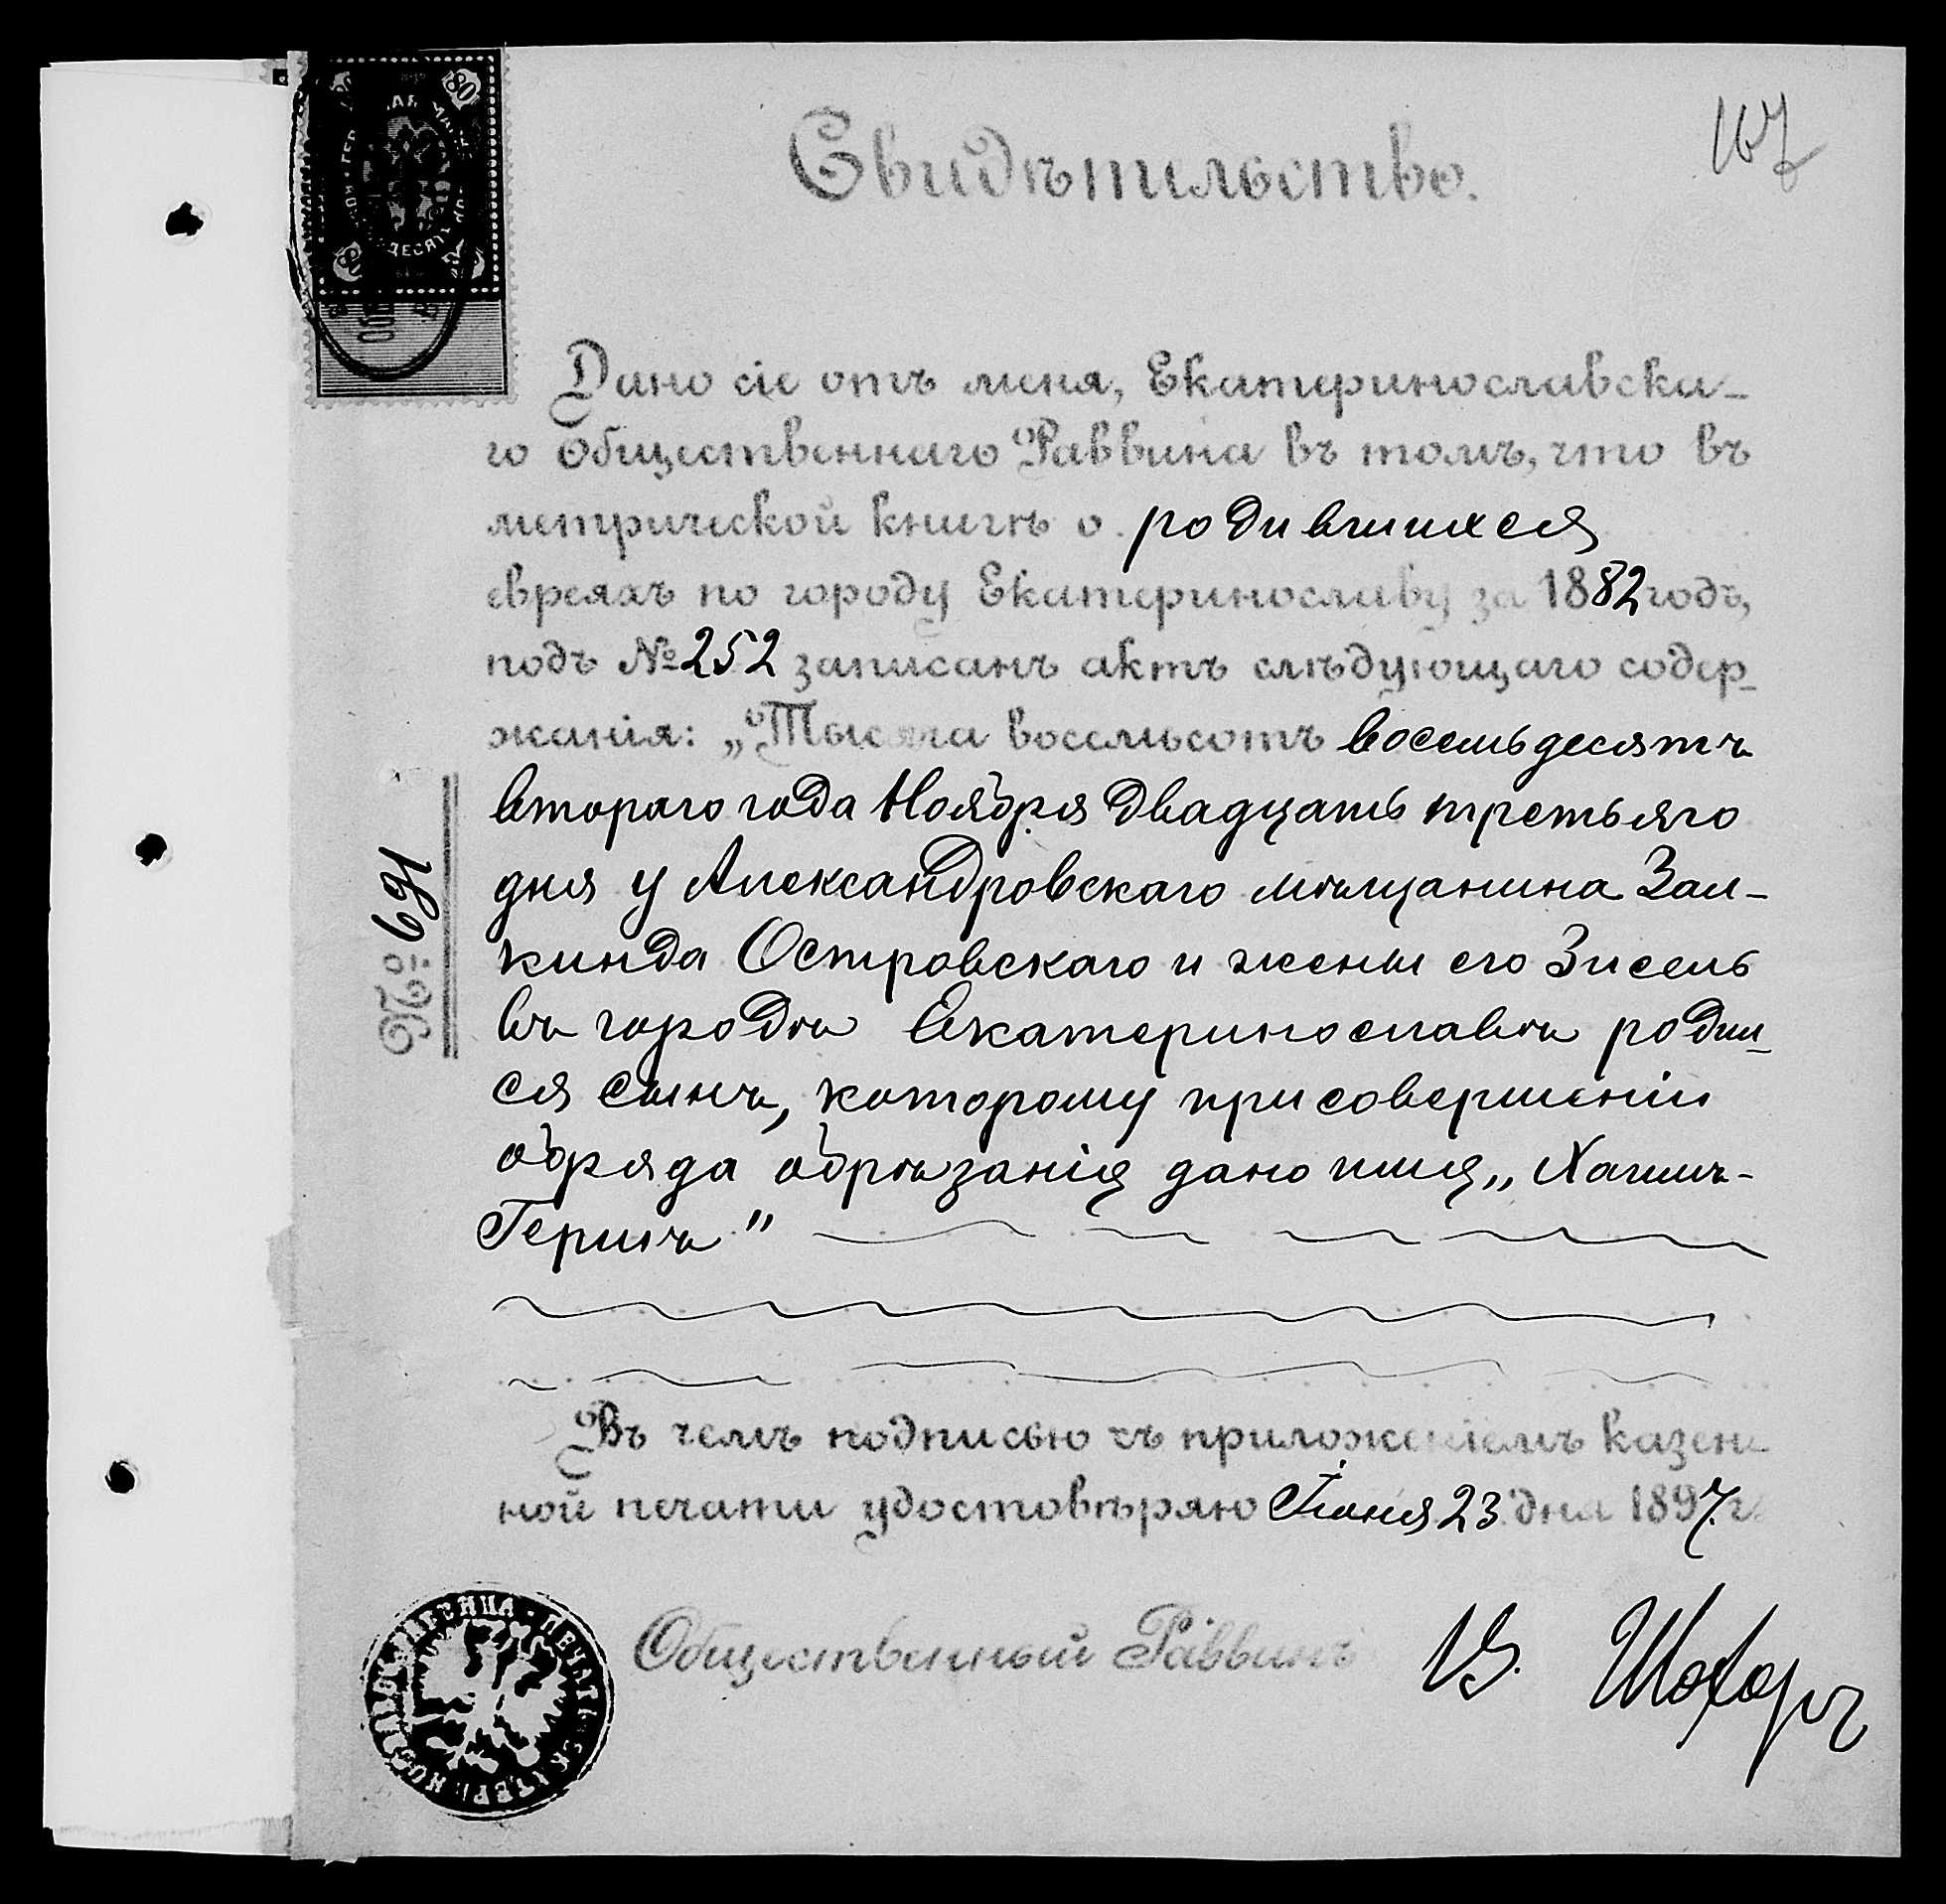 167
Свидѣтельство.
Дано сіе отъ меня, Екатеринославска-
го Общественнаго Раввина въ томъ, что въ
метрической книгѣ о родившихся
евреяхъ по городу Екатеринославу за 1882 годъ,
подъ № 252 записанъ актъ слѣдующаго содер-
жанія: „Тысяча восемьсотъ восемьдесятъ
втораго года Ноября двадцать третьяго
дня у Александровскаго мѣщанина Зал-
кинда Островскаго и жены его Зисель
въ городѣ Екатеринославѣ родил-
ся сынъ, которому при совершеніи
обряда обрѣзанія дано имя „Хаимъ-
Гершъ"
Въ чемъ подписью съ приложеніемъ казен-
ной печати удостовѣряю Іюня 23 дня 1897 г.
Общественный Раввинъ В. Шохоръ
№ 691
80